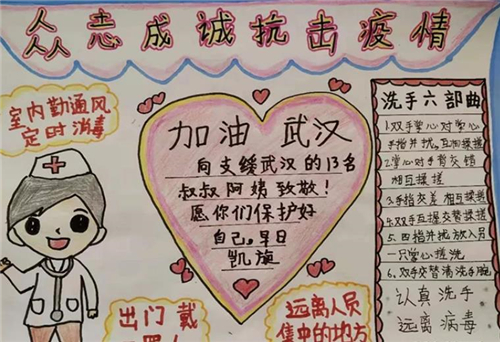 众志成诚抗击疫情
室内勤通风
定时消毒
加油 武汉
向支援武汉的13名
叔叔阿姨致敬!
愿你们保护好
自己,早日
凯旋
洗手六部曲
1.双手掌心对掌心
手指并拢,互相揉搓
2.掌心对手背交错
相互揉搓
3.手指交差 相互揉搓
4.双手互握交替揉搓
5.四指并拢放入另
一只掌心搓洗
6.双手交替清洗手腕
认真洗手
远离病毒
出门戴
远离人员
集中的地方